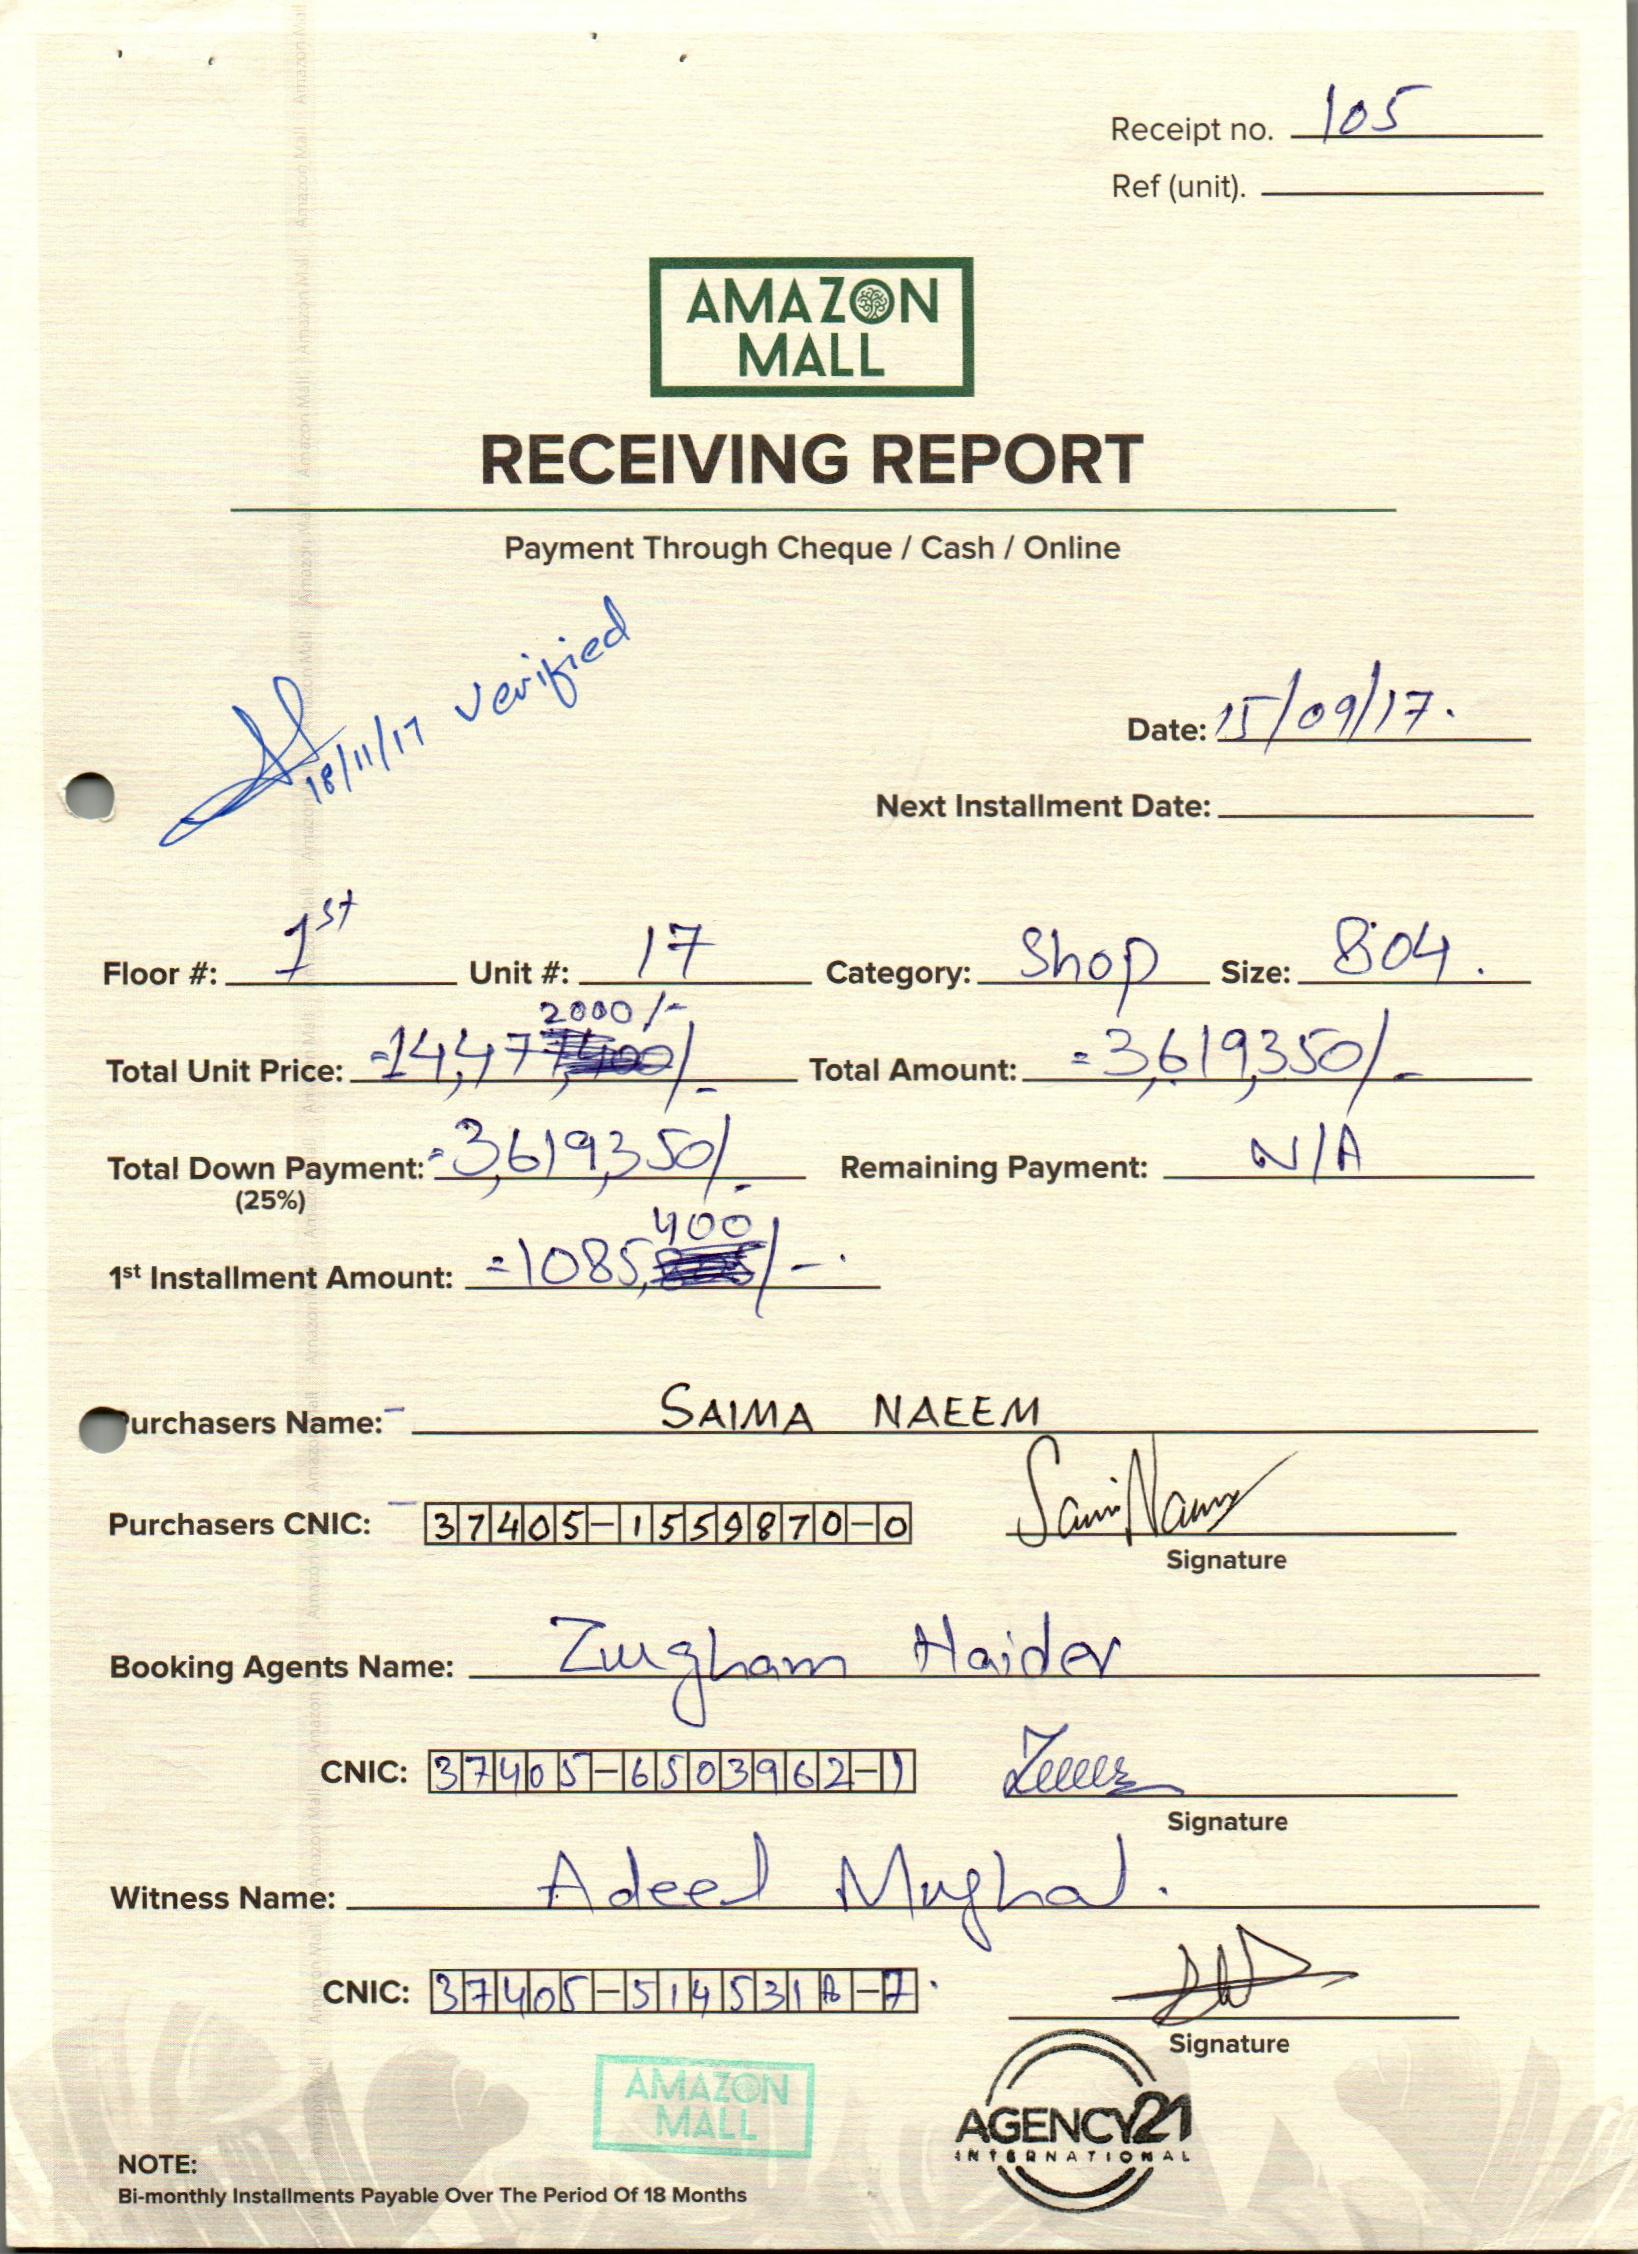 Receipt no. 105
Ref (unit).
AMAZON
MALL
RECEIVING REPORT
Payment Through Cheque / Cash / Online
18/11/17 verified
Date: 15/09/17.
Next Installment Date:
Floor #: 1st Unit #: 17 Category: Shop Size: 804.
2000/-
Total Unit Price: =14,47 /- Total Amount: =3,619,350/-
Total Down Payment: =3,619,350/- Remaining Payment: N/A
(25%)
400
1st Installment Amount: =1085, /-.
Purchasers Name: SAIMA NAEEM
Purchasers CNIC: 37405-1559870-0
Signature
Booking Agents Name: Zurgham Haider
CNIC: 37405-6503962-1
Signature
Witness Name: Adeel Mughal.
CNIC: 37405-514531 -7.
Signature
AMAZON
MALL
AGENCY21
INTERNATIONAL
NOTE:
Bi-monthly Installments Payable Over The Period Of 18 Months